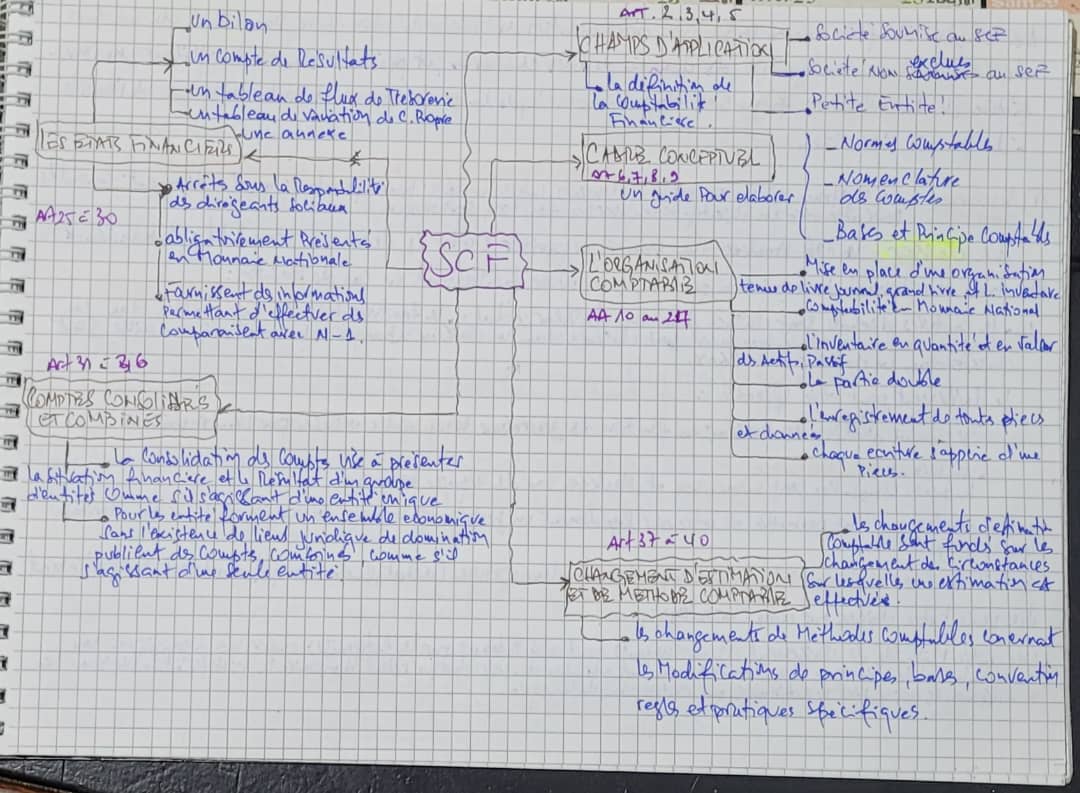 Art. 2,3,4,5
un bilan
un compte de Resultats
un tableau de flux de Tresorerie
un tableau de variation de C. Propre
une annexe
LES ETATS FINANCIERS
Arrêts sous la Responsabilité
des dirigeants sociaux
AA 25 = 30
obligatoirement Présentés
en Monnaie Nationale
Farnissent des informations
Permettant d'effectuer ds
Comparaisent avec N-1.
Art 31 = 36
COMPTES CONSOLIDES
ET COMBINES
la Consolidation ds Compts vise à présentes
la situation financiere et le Resultat d'un groupe
d'entités comme s'il s'agissant d'une entité unique
Pour les entité forment un ensemble economique
sans l'existence de liens juridique de domination
publient des Compts, combins, comme s'il
s'agissant d'une seule entité.
SCF
CHAMPS D'APPLICATION
Société Soumise au SCF
Société Non exclues au SCF
Petite Entité!
la définition de
la Comptabilité
Financiere.
CADRE CONCEPTUEL
Art 6,7,8,9
un guide Pour elaborer
Normes Comptables
Nomenclature
ds Comptes
Bases et Principe Comptables
L'ORGANISATION
COMPTABLE
AA 10 au 24
Mise en place d'une organisation
tenue de livre journal, grand livre, et L. inventaire
Comptabilité - Monnaie National
l'inventaire en quantité et en valeur
ds Actif, Passif
La partie double
l'enregistrement de touts pieces
et données
chaque ecriture s'appuie d'une
Pieces.
Art 37 = 40
CHANGEMENT D'ESTIMATION
ET DE METHODE COMPTABLE
les changements d'estimation
Comptable sont fondés sur les
changement de Circonstances
sur lesquelles une estimation est
effectuée.
les changements de Méthodes Comptables concernat
les Modifications de principes, bases, convention
regles et pratiques spécifiques.